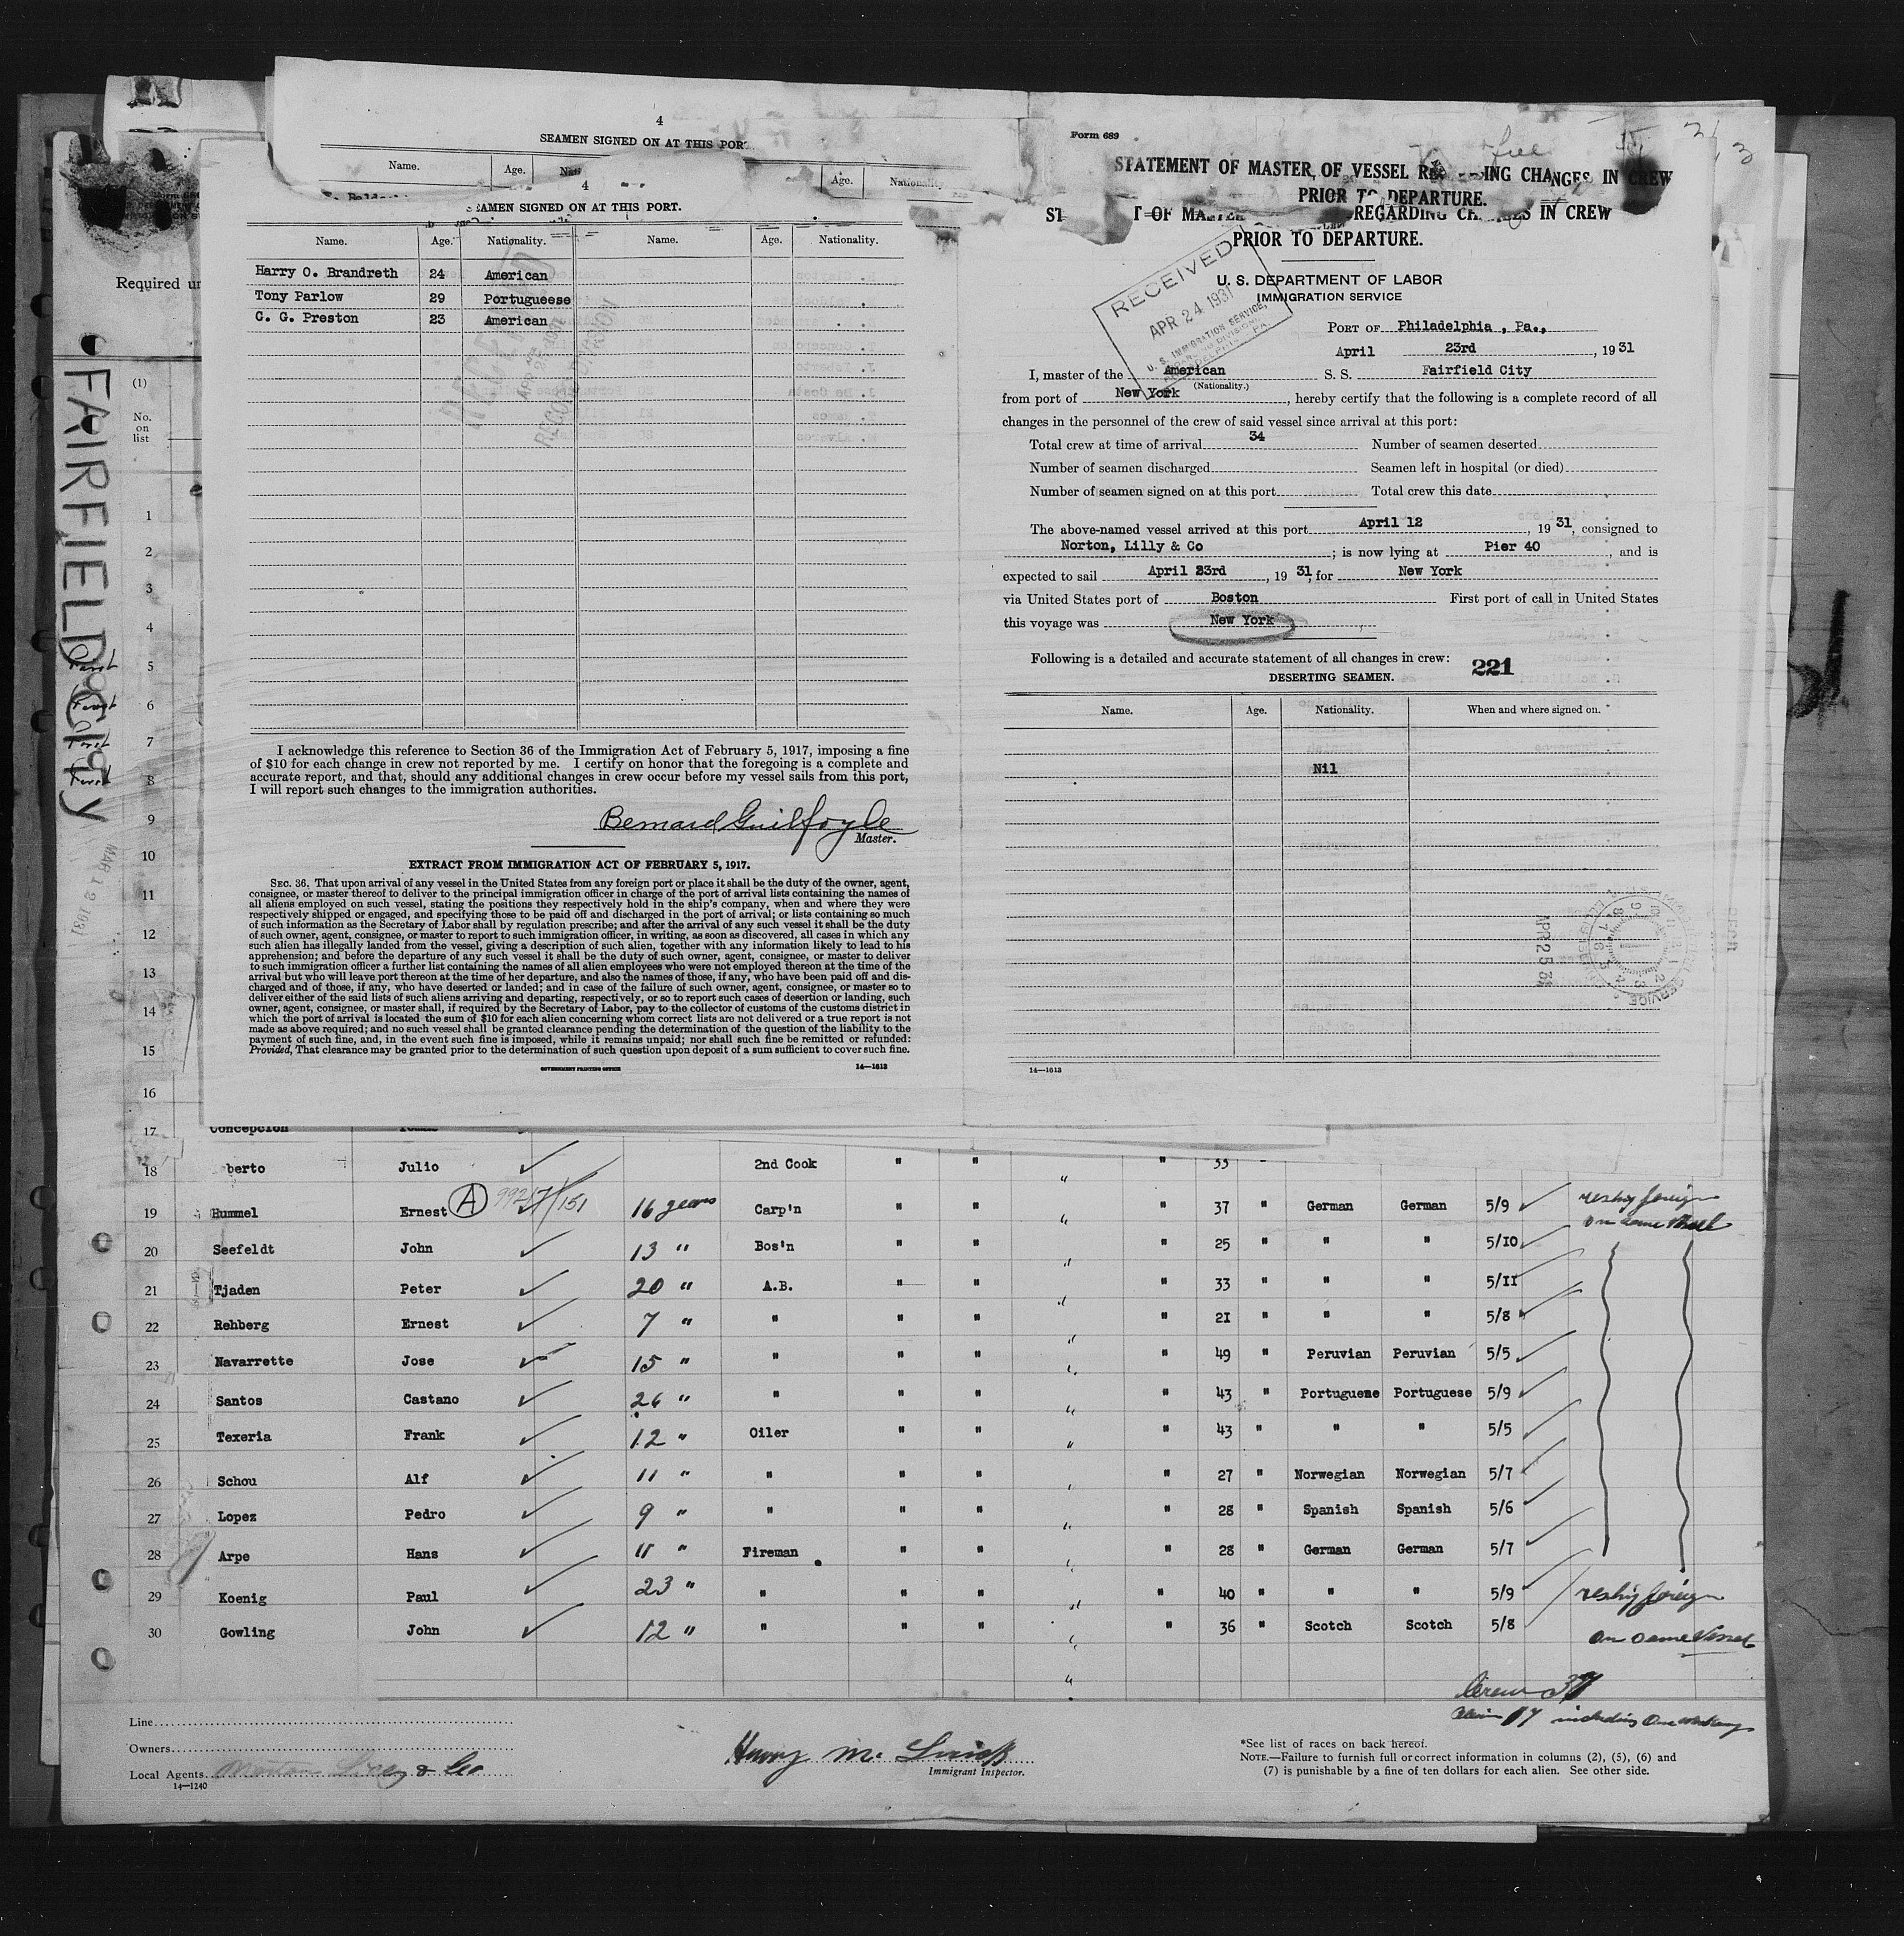 4
SEAMEN SIGNED ON AT THIS POR
Name. Age. Nati Age. Nationality
4
SEAMEN SIGNED ON AT THIS PORT.
Name. Age. Nationality. Name. Age. Nationality.
Harry O. Brandreth 24 American
Tony Parlow 29 Portugueese
C. G. Preston 23 American
I acknowledge this reference to Section 36 of the Immigration Act of February 5, 1917, imposing a fine
of $10 for each change in crew not reported by me. I certify on honor that the foregoing is a complete and
accurate report, and that, should any additional changes in crew occur before my vessel sails from this port,
I will report such changes to the immigration authorities.
Bernard Guilfoyle
Master.
EXTRACT FROM IMMIGRATION ACT OF FEBRUARY 5, 1917.
SEC. 36. That upon arrival of any vessel in the United States from any foreign port or place it shall be the duty of the owner, agent,
consignee, or master thereof to deliver to the principal immigration officer in charge of the port of arrival lists containing the names of
all aliens employed on such vessel, stating the positions they respectively hold in the ship's company, when and where they were
respectively shipped or engaged, and specifying those to be paid off and discharged in the port of arrival; or lists containing so much
of such information as the Secretary of Labor shall by regulation prescribe; and after the arrival of any such vessel it shall be the duty
of such owner, agent, consignee, or master to report to such immigration officer, in writing, as soon as discovered, all cases in which any
such alien has illegally landed from the vessel, giving a description of such alien, together with any information likely to lead to his
apprehension; and before the departure of any such vessel it shall be the duty of such owner, agent, consignee, or master to deliver
to such immigration officer a further list containing the names of all alien employees who were not employed thereon at the time of the
arrival but who will leave port thereon at the time of her departure, and also the names of those, if any, who have been paid off and dis-
charged and of those, if any, who have deserted or landed; and in case of the failure of such owner, agent, consignee, or master so to
deliver either of the said lists of such aliens arriving and departing, respectively, or so to report such cases of desertion or landing, such
owner, agent, consignee, or master shall, if required by the Secretary of Labor, pay to the collector of customs of the customs district in
which the port of arrival is located the sum of $10 for each alien concerning whom correct lists are not delivered or a true report is not
made as above required; and no such vessel shall be granted clearance pending the determination of the question of the liability to the
payment of such fine, and, in the event such fine is imposed, while it remains unpaid; nor shall such fine be remitted or refunded:
Provided, That clearance may be granted prior to the determination of such question upon deposit of a sum sufficient to cover such fine.
GOVERNMENT PRINTING OFFICE 14—1613
Form 689
STATEMENT OF MASTER OF VESSEL R ING CHANGES IN CREW
PRIOR TO DEPARTURE.
ST T OF MASTER REGARDING CH ES IN CREW
PRIOR TO DEPARTURE.
U. S. DEPARTMENT OF LABOR
IMMIGRATION SERVICE
RECEIVED
APR 24 1931
U. S. IMMIGRATION SERVICE,
PORT OF Philadelphia , Pa.,
April 23rd , 1931
I, master of the American S. S. Fairfield City
(Nationality.)
from port of New York , hereby certify that the following is a complete record of all
changes in the personnel of the crew of said vessel since arrival at this port:
Total crew at time of arrival 34 Number of seamen deserted
Number of seamen discharged Seamen left in hospital (or died)
Number of seamen signed on at this port Total crew this date
The above-named vessel arrived at this port April 12 , 1931, consigned to
Norton, Lilly & Co ; is now lying at Pier 40 , and is
expected to sail April 23rd , 1931, for New York
via United States port of Boston First port of call in United States
this voyage was New York
Following is a detailed and accurate statement of all changes in crew: 221
DESERTING SEAMEN.
Name. Age. Nationality. When and where signed on.
Nil
APR 25 31
14—1613
Required un
(1)
No.
on
list
FAIRFIELD City
MAR 12 1931
1
2
3
4
5
6
7
8
9
10
11
12
13
14
15
16
17 Concepcion
18 berto Julio 2nd Cook " " " " 33
19 Hummel Ernest A 99217/151 16 years Carp'n " " " " 37 " German German 5/9 reship foreign
on same vessel
20 Seefeldt John 13 " Bos'n " " " " 25 " " " 5/10
21 Tjaden Peter 20 " A.B. " " " " 33 " " " 5/11
22 Rehberg Ernest 7 " " " " " " 21 " " " 5/8
23 Navarrette Jose 15 " " " " " " 49 " Peruvian Peruvian 5/5
24 Santos Castano 26 " " " " " " 43 " Portuguese Portuguese 5/9
25 Texeria Frank 12 " Oiler " " " " 43 " " " 5/5
26 Schou Alf 11 " " " " " " 27 " Norwegian Norwegian 5/7
27 Lopez Pedro 9 " " " " " " 28 " Spanish Spanish 5/6
28 Arpe Hans 11 " Fireman " " " " 28 " German German 5/7
29 Koenig Paul 23 " " " " " " 40 " " " 5/9 reship foreign
30 Gowling John 12 " " " " " " 36 " Scotch Scotch 5/8 on same vessel
Crew
Line
Owners
Local Agents Norton Lilly & Co
14—1240
Henry M.
Immigrant Inspector.
*See list of races on back hereof.
NOTE.—Failure to furnish full or correct information in columns (2), (5), (6) and
(7) is punishable by a fine of ten dollars for each alien. See other side.